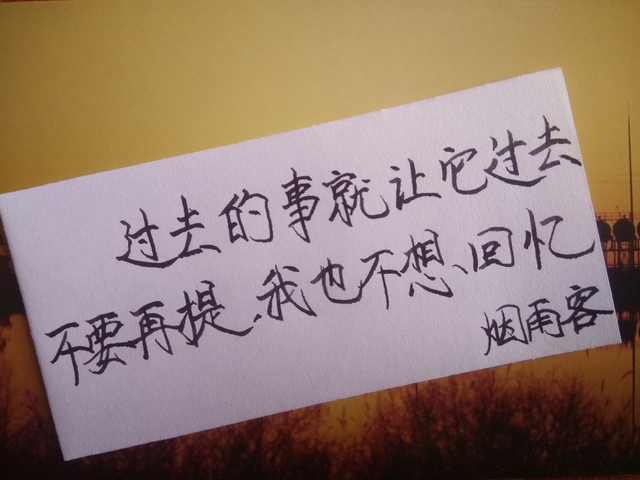 过去的事就让它过去
不要再提、我也不想、回忆
烟雨客